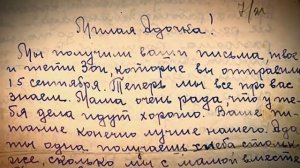 7/IX
Милая Адочка!
Мы получили ваши письма, твое
и тети Зои, которые вы отправили
15 сентября. Теперь мы все про вас
знаем. Мама очень рада что у те-
бя дела идут хорошо. Ваше пи-
тание конечно лучше нашего. Адо
ты одна получаешь хлеба столько
же, сколько мы с мамой вместе